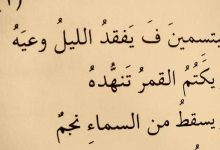 (١)
يبتسمينَ فَ يَفقدُ الليلُ وعيَهُ
يَكتُمُ القمرُ تَنهُّدهُ
يسقطُ من السماءِ نجمٌ